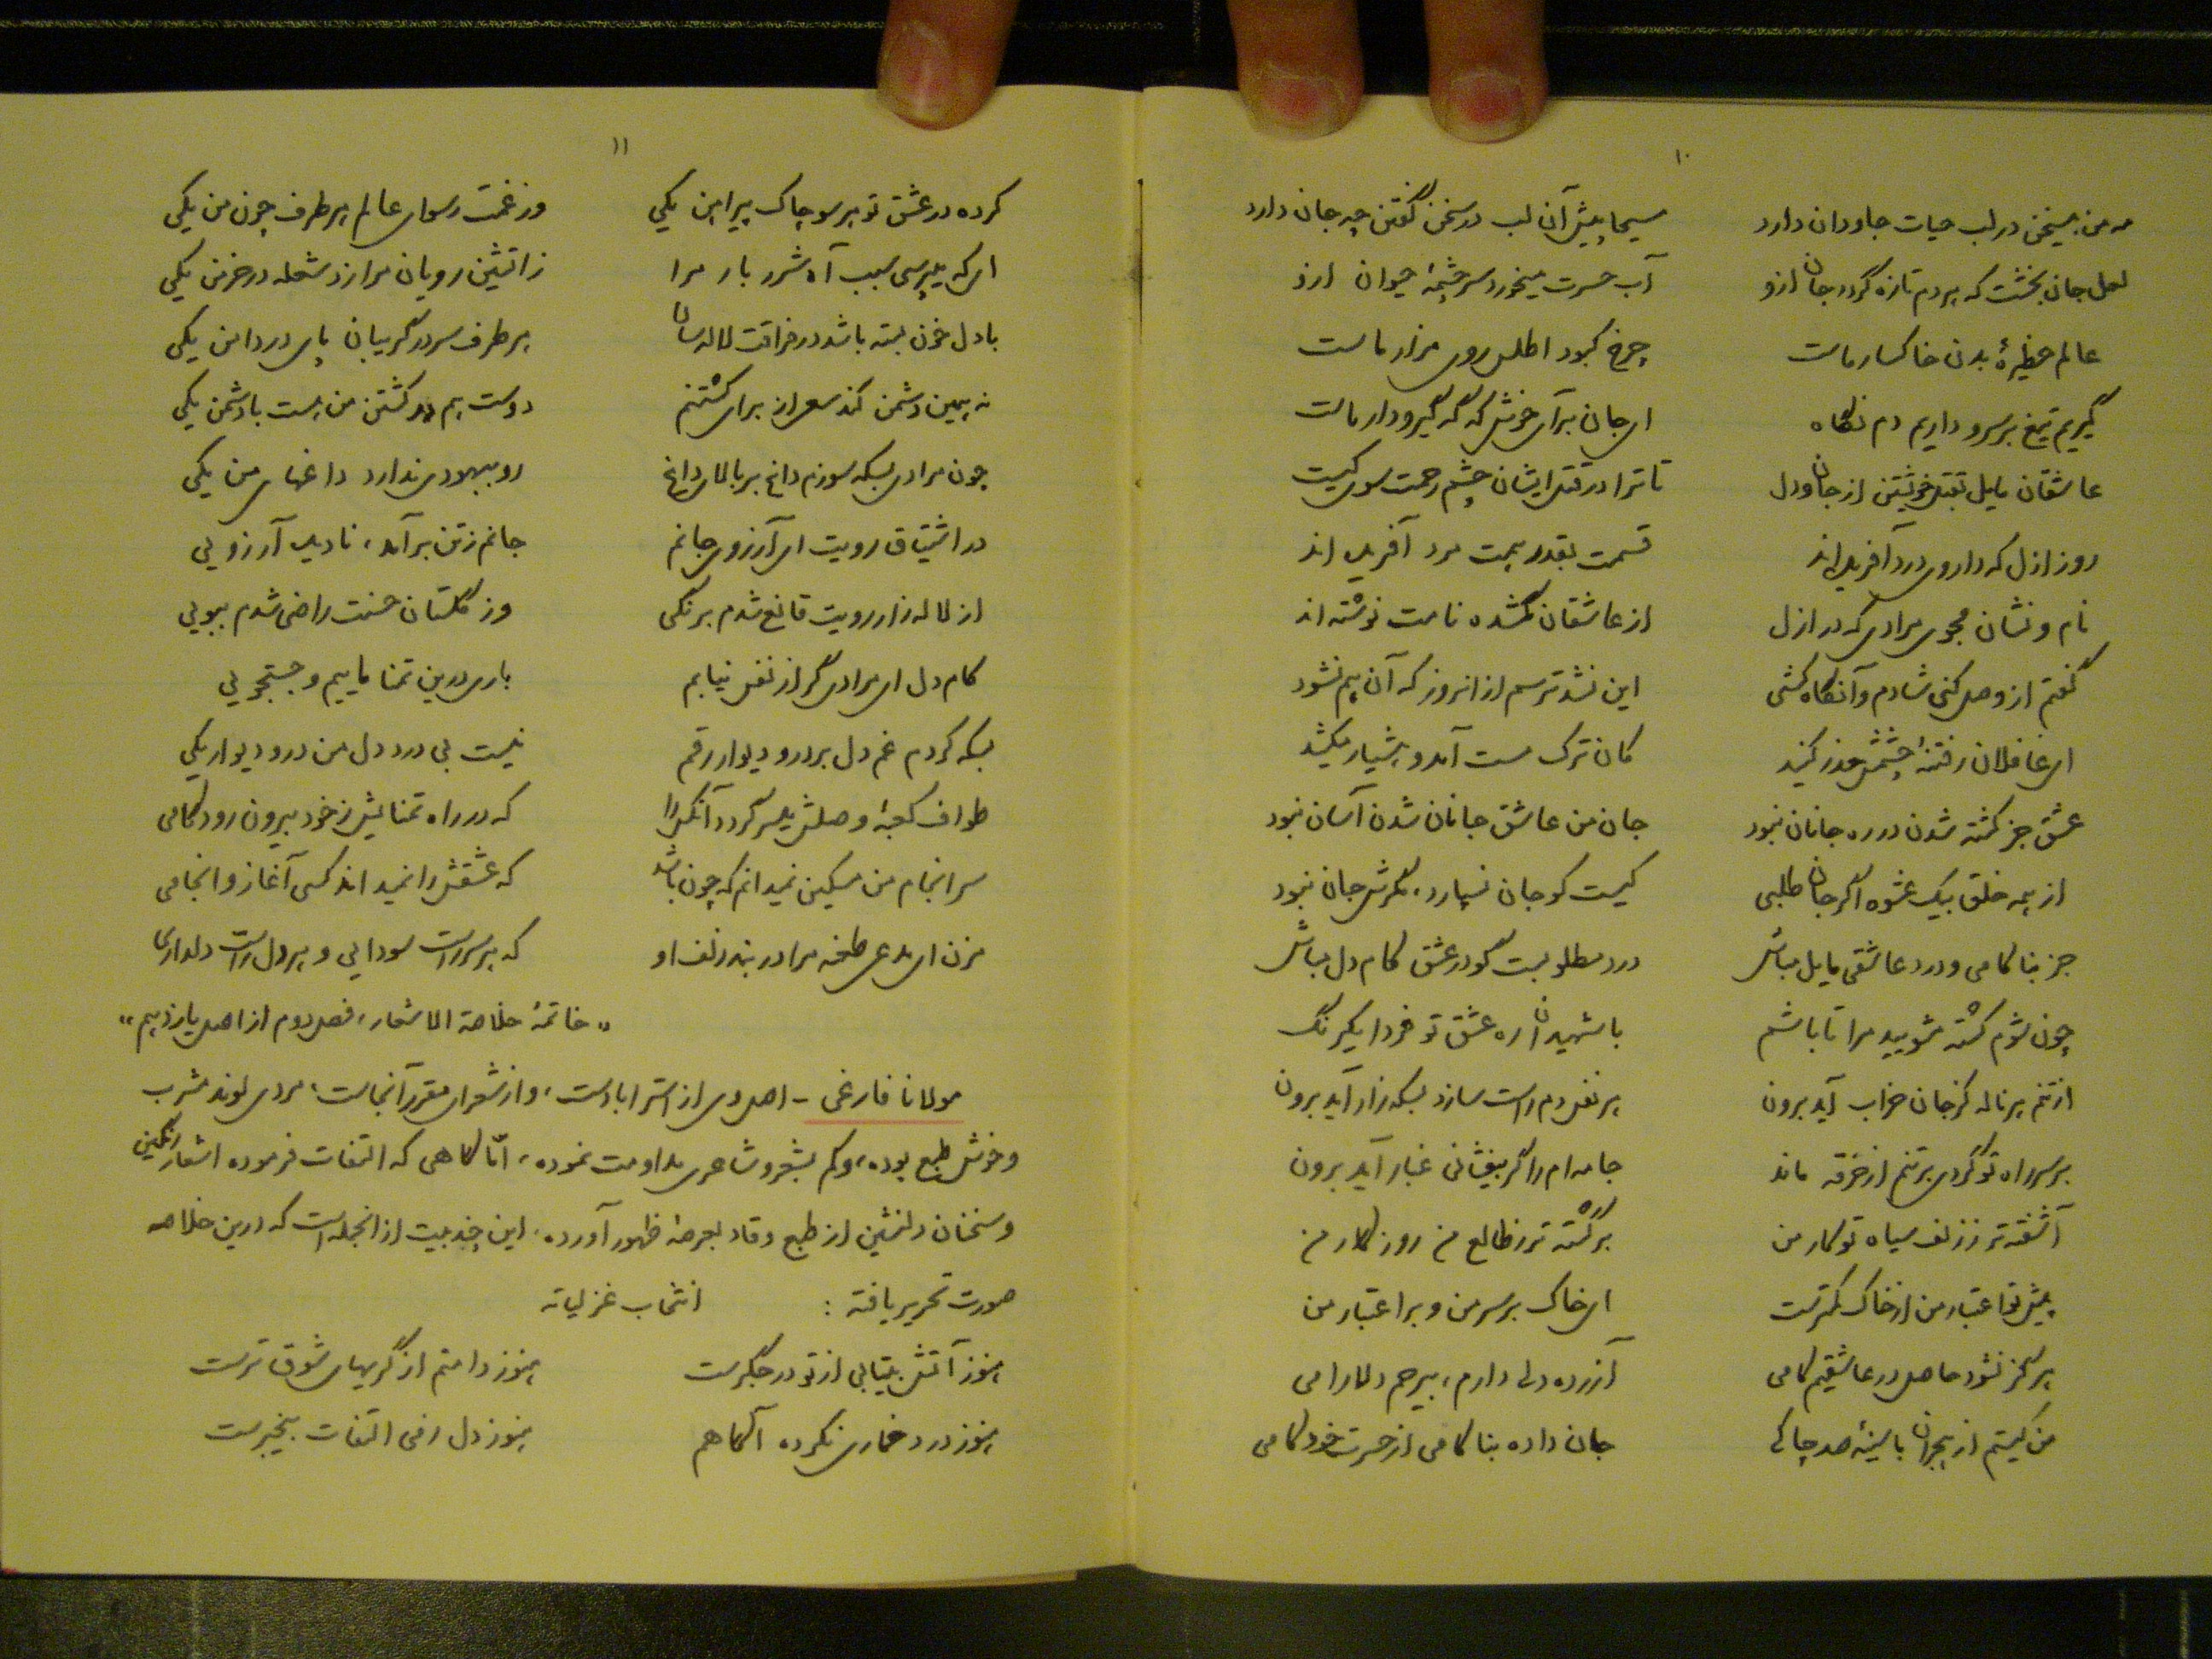 ۱۰
مه من بیسخن در لب حیات جاودان دارد مسیحا پیش آن لب در سخن گفتن چه جان دارد
لعل جان بخشت که هر دم تازه گردد جان ازو آب حسرت میخورد سرچشمهٔ حیوان ازو
عالم حظیرهٔ بدن خاکسار ماست چرخ کبود اطلس روی مزار ماست
گیریم تیغ بر سر و داریم دم نگاه ای جان برآی خوش که گه گیرودار ماست
عاشقان مایل بقتل خویشتن از جان و دل تا ترا در قتل ایشان چشم رحمت سوی کیست
روز ازل که داروی درد آفریده‌اند قسمت بقدر همت مرد آفریده‌اند
نام و نشان مجوی مرادی که در ازل از عاشقان گمشده نامت نوشته‌اند
گفتم از وصل کنی شادم و آنگاه کشی این نشد ترسم از انروز که آن هم نشود
ای غافلان ز فتنهٔ چشمش حذر کنید کان ترک مست آمد و هشیار میکشد
عشق جز کشته شدن در ره جانان نبود جان من عاشق جانان شدن آسان نبود
از همه خلق بیک عشوه اگر جان طلبی کیست کو جان نسپارد، مگرش جان نبود
جز بناکامی و درد عاشقی مایل مباش درد مطلوبست گو در عشق کام دل مباش
چون شوم کشته مشویید مرا تا باشم با شهیدان ره عشق تو فردا یکرنگ
از تنم هر ناله کز جان خراب آید برون هر نفس دم راست سازد بسکه زار آید برون
بر سر راه تو گردی بر تنم از خرقه ماند جامه‌ام را گر بیفشانی غبار آید برون
آشفته‌تر ز زلف سیاه تو کار من برگشته‌تر ز طالع من روزگار من
پیش تو اعتبار من از خاک کمترست ای خاک بر سر من و بر اعتبار من
هرگز نشود حاصل در عاشقیم کامی آزرده دلی دارم، بیرحم دلارامی
من کیستم از هجران با سینهٔ صد چاکی جان داده بناکامی از حسرت خودکامی
۱۱
کرده در عشق تو هر سو چاک پیراهن یکی وز غمت رسوای عالم هر طرف چون من یکی
ای که میپرسی سبب آه شرر بار مرا ز اتشین رویان مرا زد شعله در خرمن یکی
با دل خون بسته باشد در فراقت لاله‌سان هر طرف سر در گریبان پای در دامن یکی
نه همین دشمن کند سعی از برای کشتنم دوست هم در کشتن من هست با دشمن یکی
چون مرادی بسکه سوزم داغ بر بالای داغ رو ببهبودی ندارد داغهای من یکی
در اشتیاق رویت ای آرزوی جانم جانم ز تن برآمد، نادیده آرزویی
از لاله‌زار رویت قانع شدم برنگی وز گلستان حسنت راضی شدم ببویی
کام دل ای مرادی گر از نفس نیابم باری درین تمنا ماییم و جستجویی
بسکه کردم غم دل بر در و دیوار رقم نیست بی درد دل من در و دیوار یکی
طواف کعبهٔ وصلش میسر گردد آنکس را که در راه تمنایش ز خود بیرون رود گامی
سرانجام من مسکین نمیدانم که چون باشد که عشقش را نمیداند کسی آغاز و انجامی
مزن ای مدعی طعنه مرا در بند زلف او که هر سر راست سودایی و هر دل راست دلداری
«خاتمهٔ خلاصة الاشعار، فصل دوم از اصل یازدهم»
مولانا فارغی - اصل وی از استرابادست، و از شعرای مقرر آنجاست، مردی لوند مشرب
و خوش طبع بوده، و کم بشعر و شاعری مداومت نموده، امّا گاهی که التفات فرموده اشعار رنگین
و سخنان دلنشین از طبع وقاد بعرصهٔ ظهور آورده، این چند بیت از انجمله است که درین خلاصه
صورت تحریر یافته : انتخاب غزلیاته
هنوز آتش بیتابی از تو در جگرست هنوز دامنم از گریهای شوق ترست
هنوز درد خماری نکرده آگاهم هنوز دل ز می التفات بیخبرست